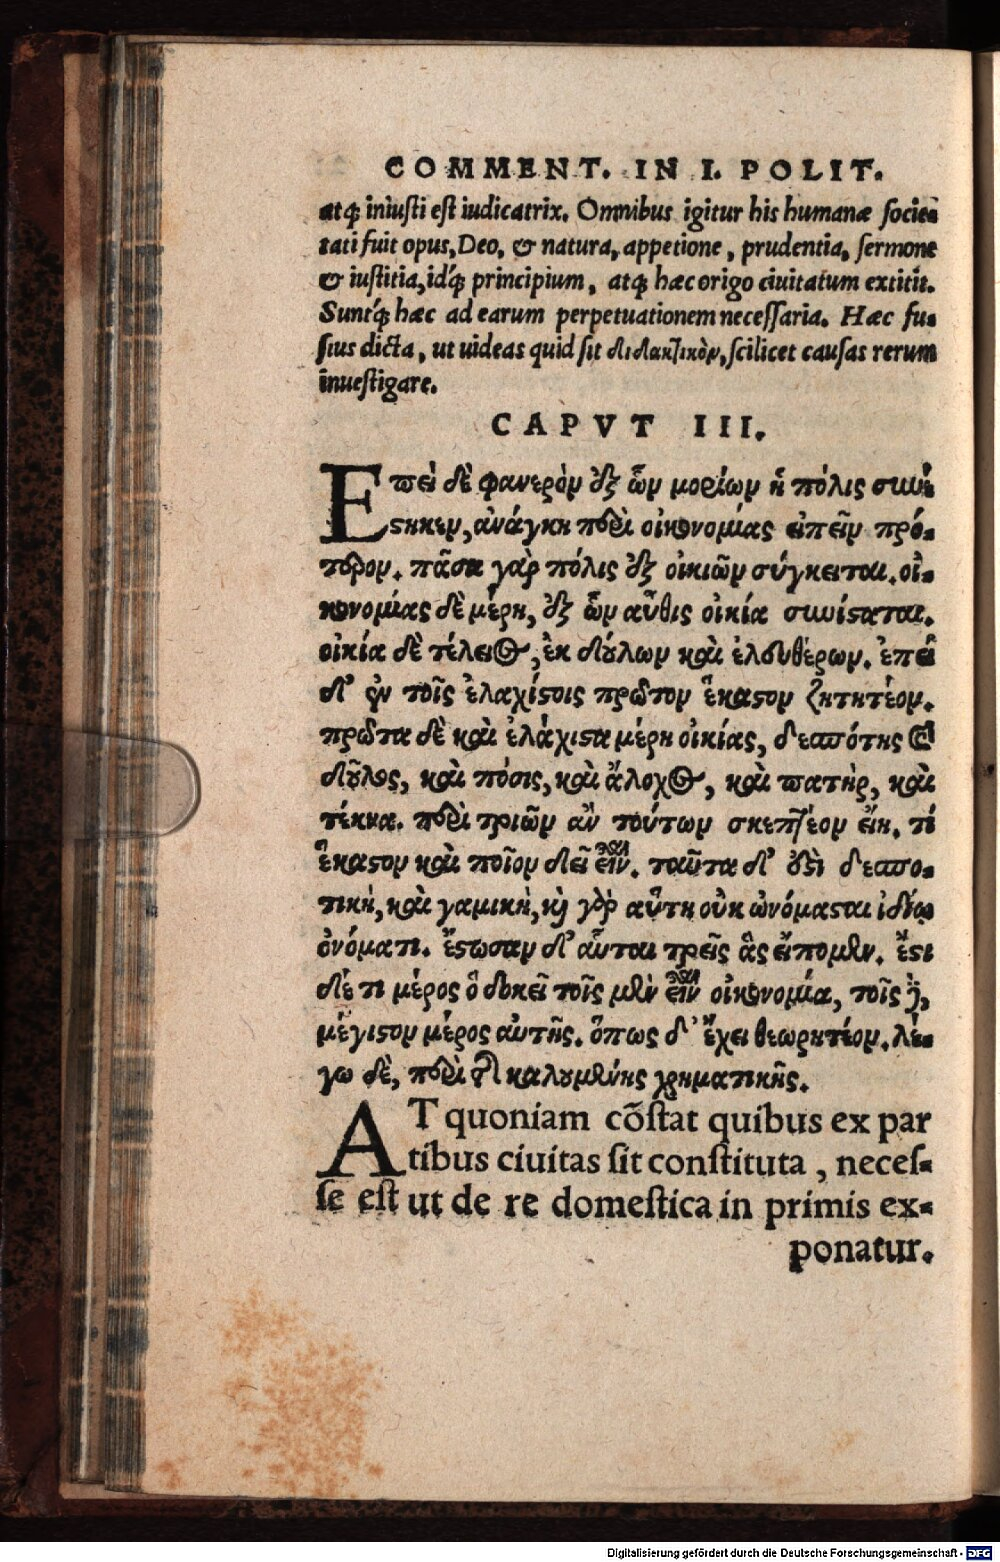 COMMENT. IN I. POLIT.
atq; iniusti est iudicatrix. Omnibus igitur his humanæ socie=
tati fuit opus, Deo, & natura, appetione, prudentia, sermone
& iustitia, idq́; principium, atq; hæc origo ciuitatum extitit.
Suntq́; hæc ad earum perpetuationem necessaria. Hæc fu=
sius dicta, ut uideas quid sit διδακτικὸν, scilicet causas rerum
inuestigare.
CAPVT III.
Eπεὶ δὲ φανερὸν ἐξ ὧν μορίων ἡ πόλις συνέ=
στηκεν, ἀνάγκη περὶ οἰκονομίας εἰπεῖν πρό=
τερον. πᾶσα γὰρ πόλις ἐξ οἰκιῶν σύγκειται. οἰ=
κονομίας δὲ μέρη, ἐξ ὧν αὖθις οἰκία συνίσταται.
οἰκία δὲ τέλειος, ἐκ δούλων καὶ ἐλευθέρων. ἐπεὶ
δ' ἐν τοῖς ἐλαχίστοις πρῶτον ἕκαστον ζητητέον.
πρῶτα δὲ καὶ ἐλάχιστα μέρη οἰκίας, δεσπότης καὶ
δοῦλος, καὶ πόσις, καὶ ἄλοχος, καὶ πατὴρ, καὶ
τέκνα. περὶ τριῶν ἂν τούτων σκεπτέον εἴη. τί
ἕκαστον καὶ ποῖον δεῖ εἶναι. ταῦτα δ' ἐστὶ δεσπο=
τικὴ, καὶ γαμικὴ, καὶ γὰρ αὕτη οὐκ ὠνόμασται ἰδίῳ
ὀνόματι. ἔστωσαν δ' αὗται τρεῖς ἃς εἴπομεν. ἔστι
δέ τι μέρος ὃ δοκεῖ τοῖς μὲν εἶναι οἰκονομία, τοῖς δὲ,
μέγιστον μέρος αὐτῆς. ὅπως δ' ἔχει θεωρητέον. λέ=
γω δὲ, περὶ τῆς καλουμένης χρηματικῆς.
AT quoniam cõstat quibus ex par
tibus ciuitas sit constituta, neces=
se est ut de re domestica in primis ex=
ponatur.
Digitalisierung gefördert durch die Deutsche Forschungsgemeinschaft - DFG